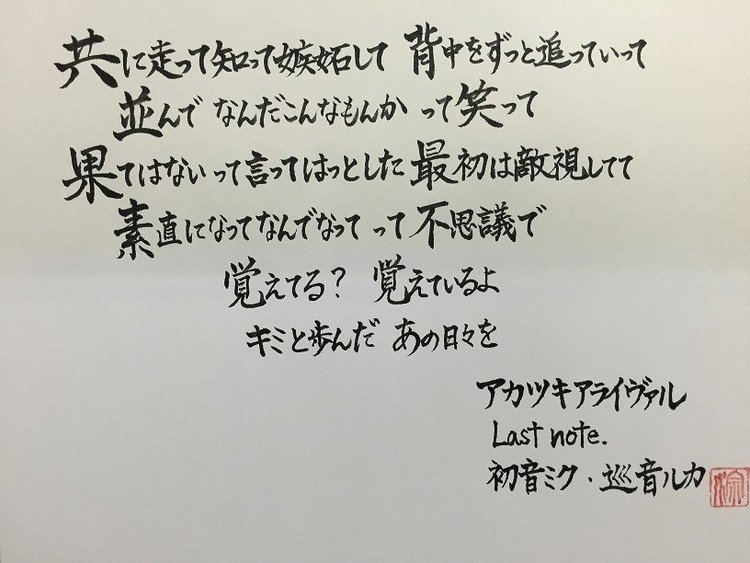 共に走って知って嫉妬して 背中をずっと追っていって
並んで なんだこんなもんか って笑って
果てはないって言ってはっとした 最初は敵視してて
素直になってなんでなって って 不思議で
覚えてる? 覚えているよ
キミと歩んだ あの日々を
アカツキアライヴァル
Last note.
初音ミク・巡音ルカ